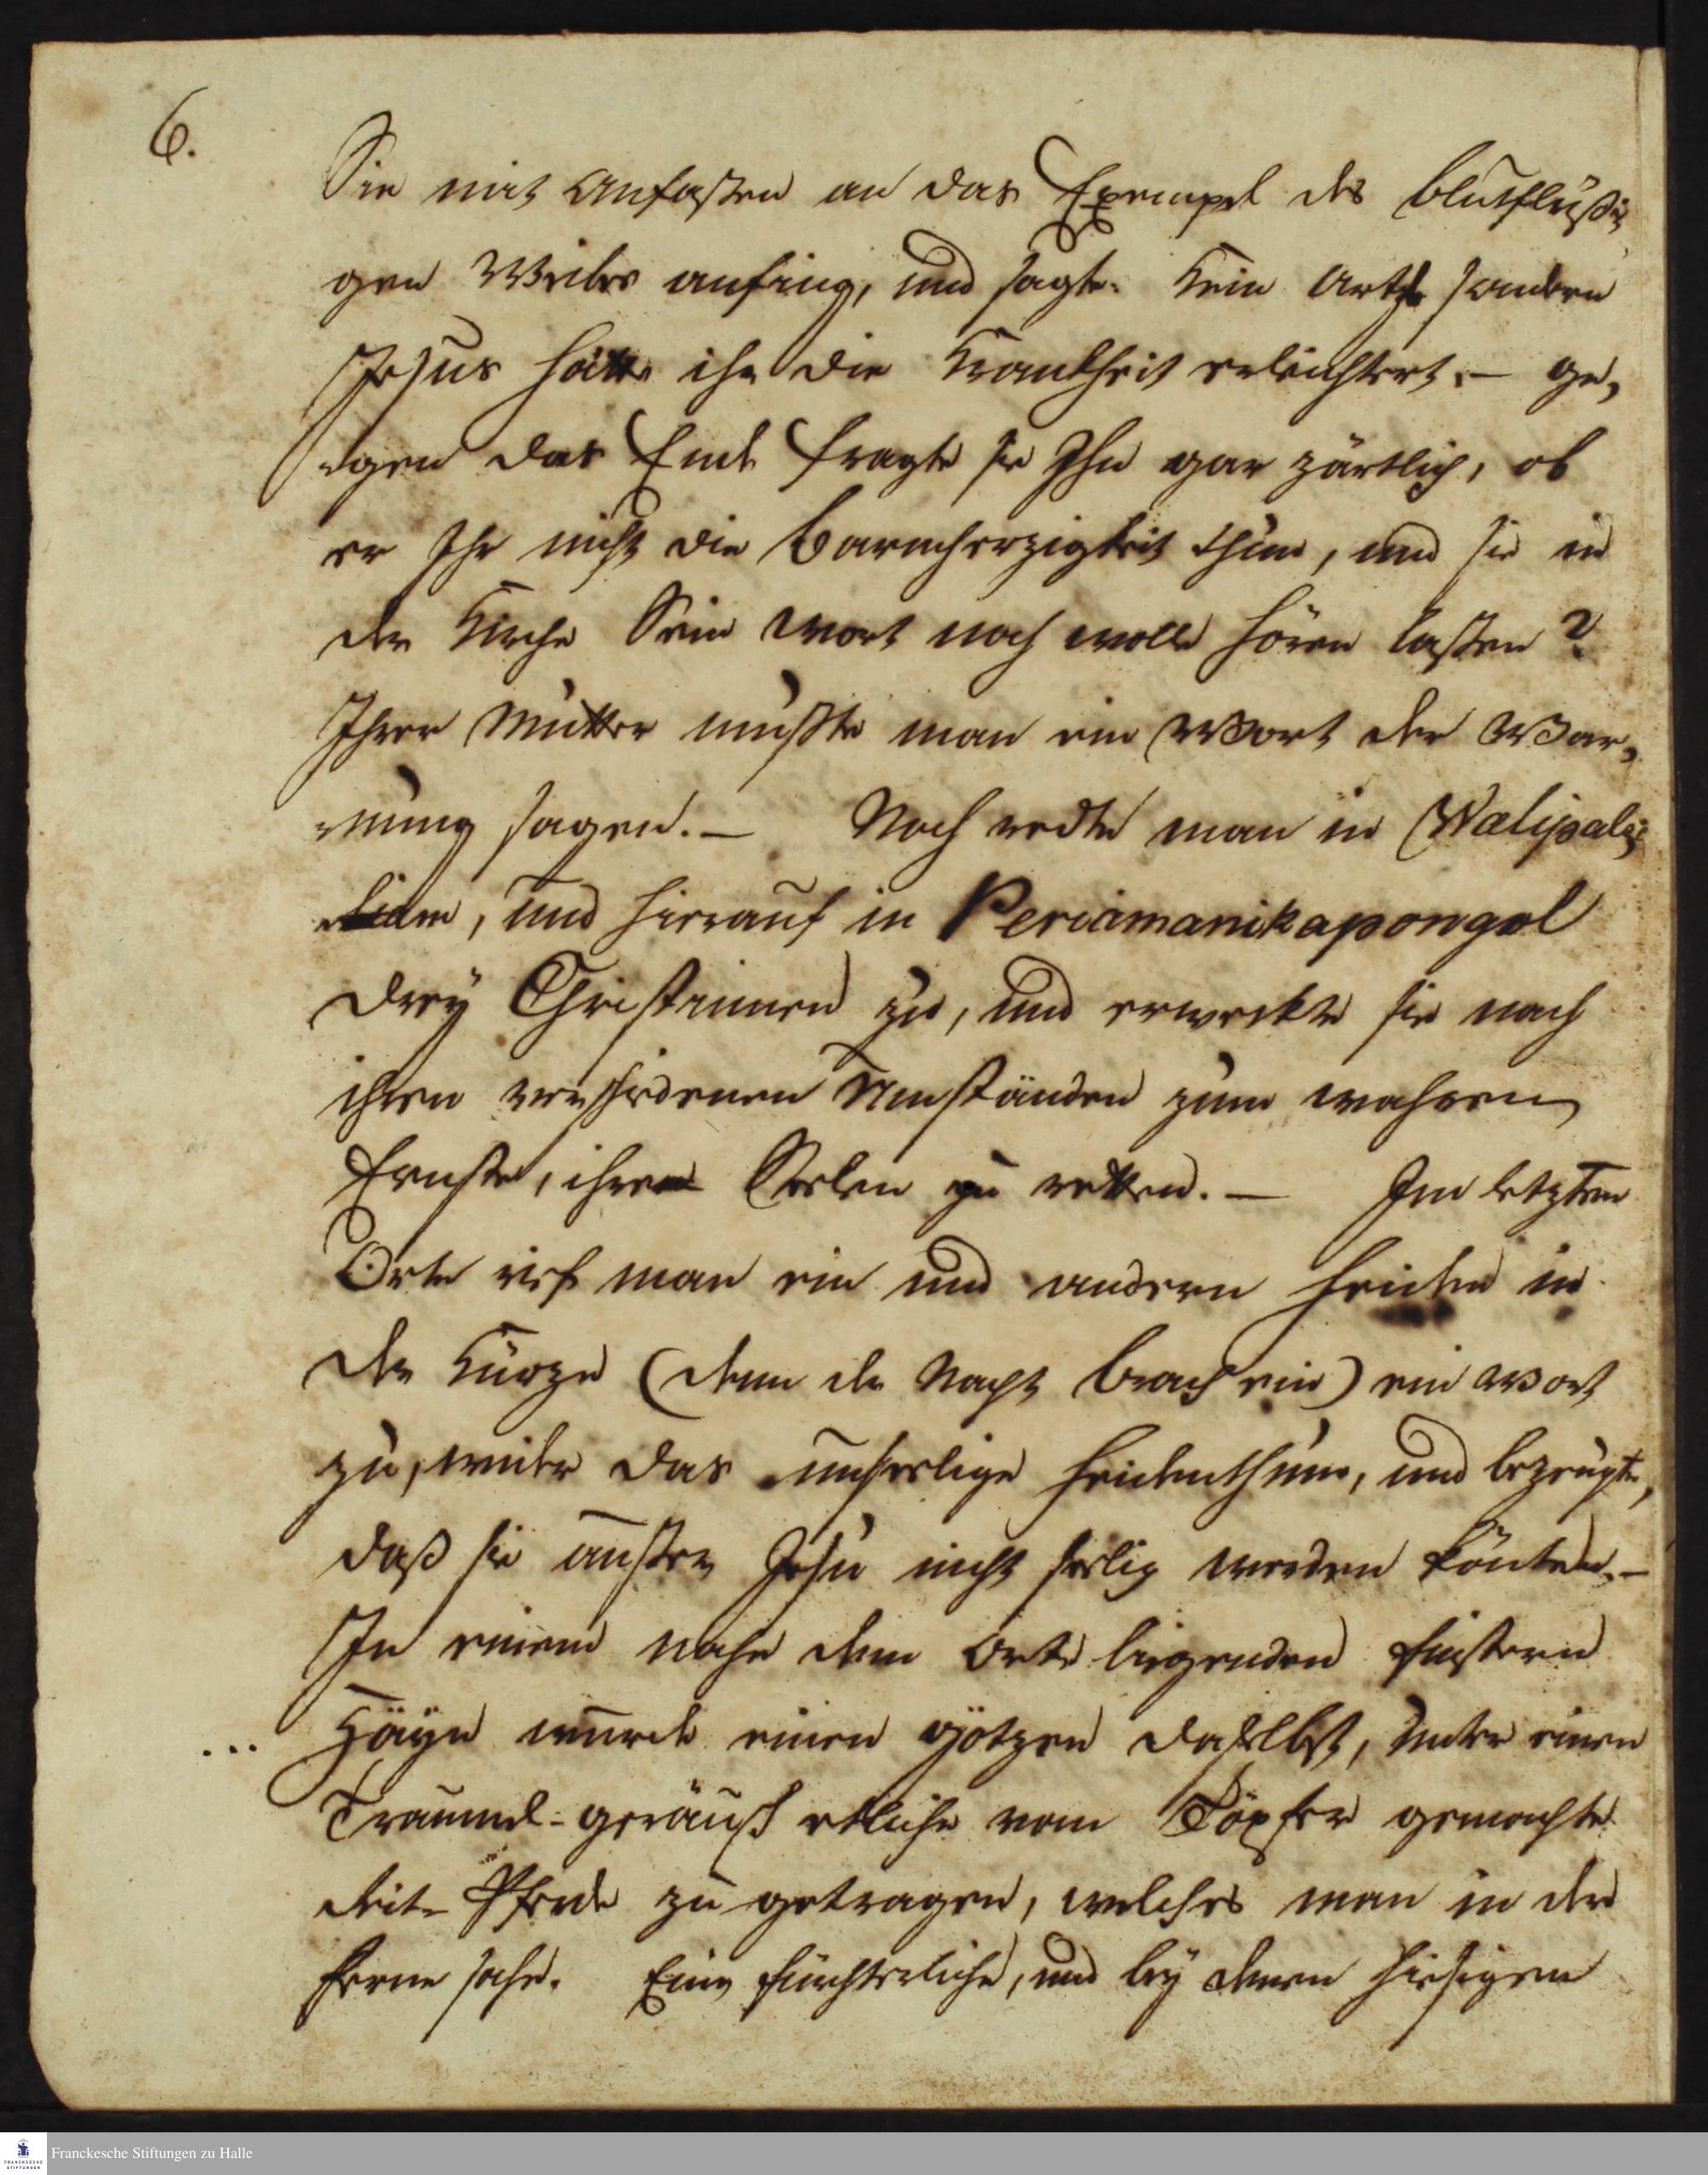 6.
Sie mit Anfaßen an das Exempel des blutflüßi¬
gen Weibes anfing, und sagte: Kein Artzt sondern
Jesus hätte ihr die Krankheit erleichtert. – Ge¬
gen das Ende fragte sie Ihn gar zärtlich, ob
er Ihr nicht die Barmherzigkeit thun, und sie in
der Kirche Sein Wort noch wolle hören laßen?
Ihrer Mutter mußte man ein Wort der War¬
nung sagen. – Noch redte man in Walipale¬
, und hierauf in Periamanikapongol
drey Christinnen zu, und erweckte sie nach
ihren verschiedenen Umständen zum wahren
Ernste, ihre Seelen zu retten. – Im letztern
Orte rief man ein und andern Heiden in
der Kürze (denn die Nacht brach ein) ein Wort
zu, wider das unseelige Heidenthum, und bezeugte,
daß sie außer Jesu nicht seelig werden könten. –
In einem nahe dem Orte liegenden finstern
... Häyn wurde einen Götzen daselbst, unter einen
Trummel-geräusch etliche vom Töpfer gemachte
Reit-Pferde zu getragen, welches man in der
Ferne sahe. Eine fürchterliche, und bey denen hiesigen
Franckesche Stiftungen zu Halle